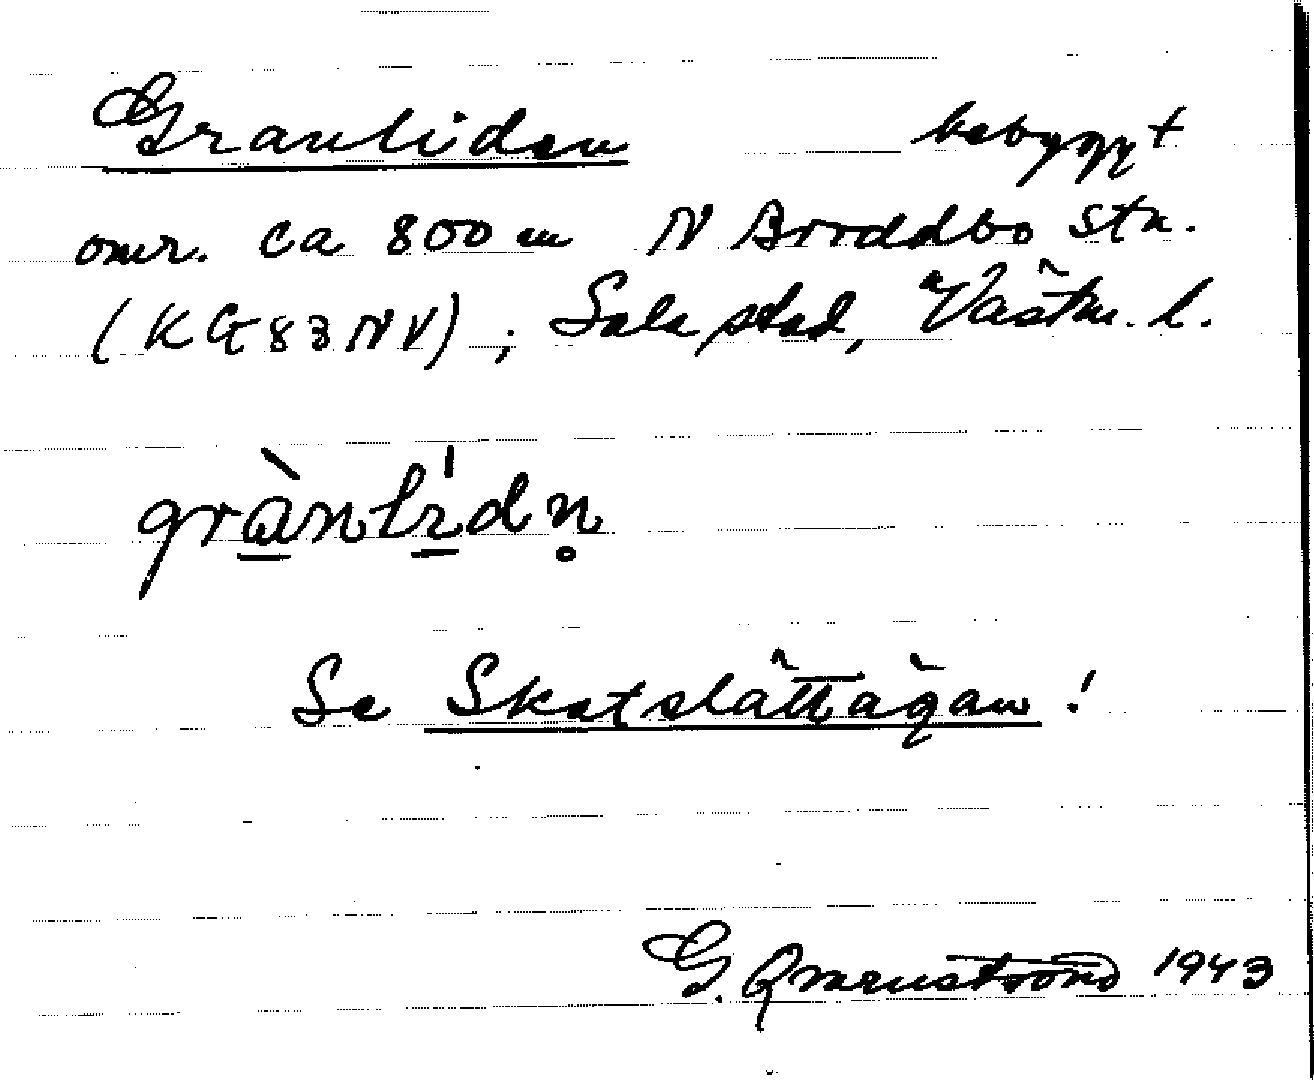 Granliden bebyggt
omr. ca 800 m N Broddbo stn.
(KG83NV); Sala stad, Västm. l.
grànlídn̥
Se Skatslåttägan!
G. Qvarnström 1943